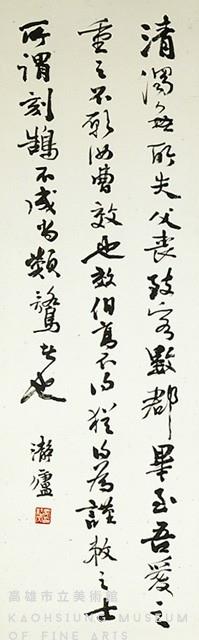 清濁無所失父喪致客數郡畢至吾愛之
重之不願汝曹效也效伯高不得猶為謹敕之士
所謂刻鵠不成尚類鶩者也
瀞廬
高雄市立美術館
KAOHSIUNG MUSEUM
OF FINE ARTS